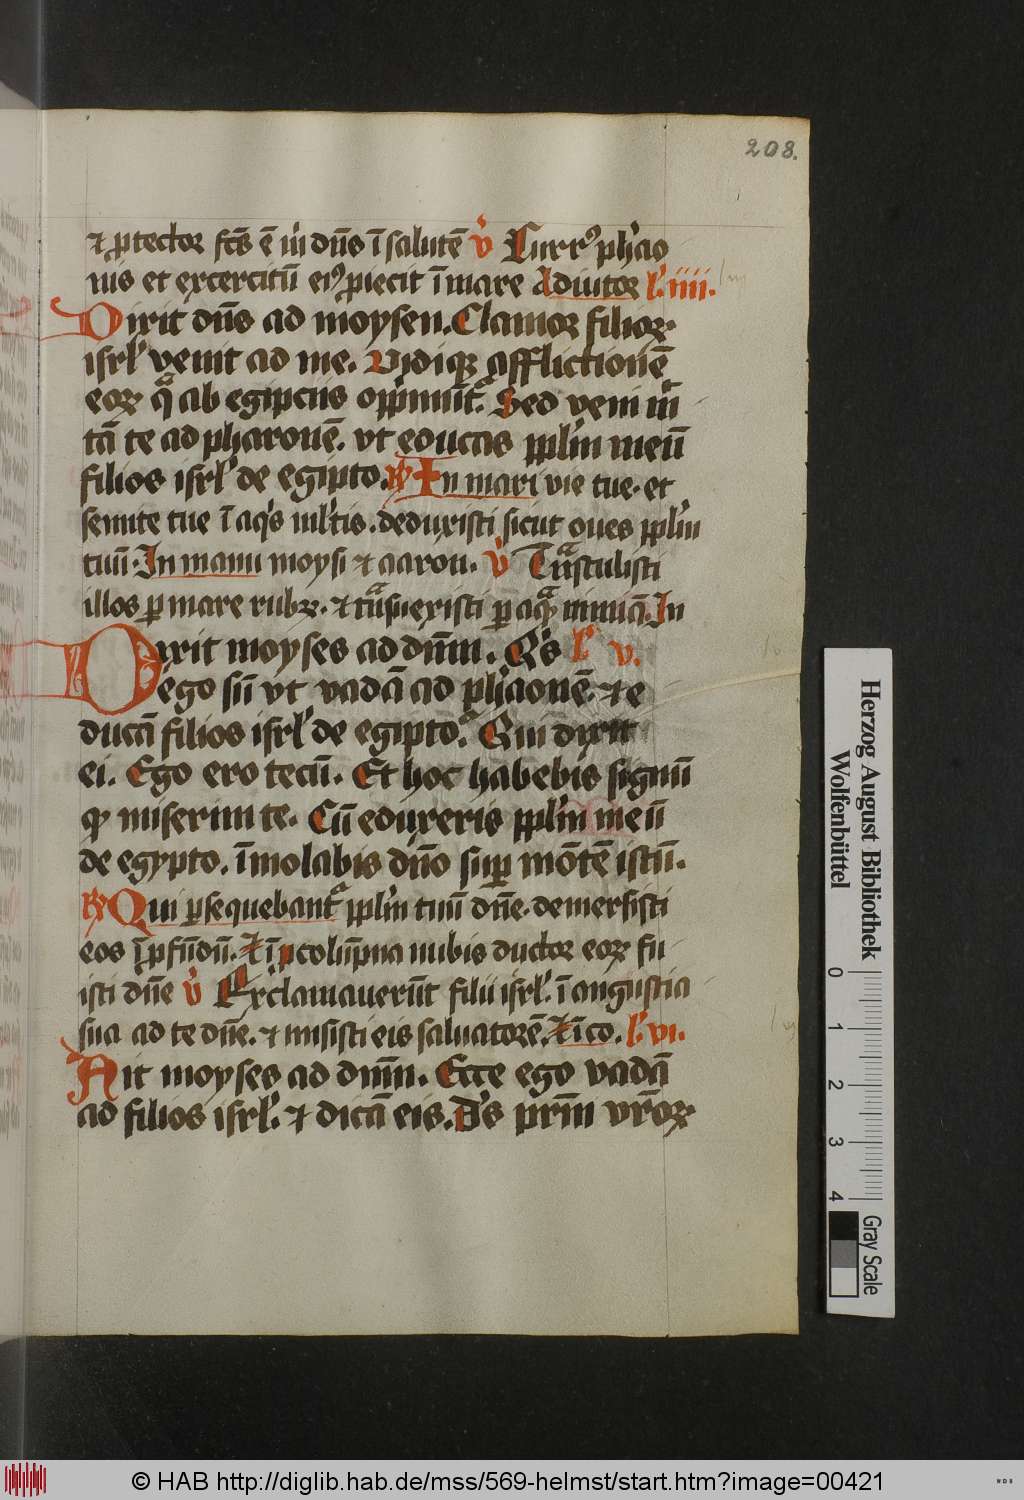 208.
⁊ ꝓtector fcs̄ ē m̄ dn̄s ī salutē v̾ Curr᷒ ph̾ao
nis et excercitū ei᷒ ꝓiecit ī mare Adiutor l̾. iiii.
Dixit dn̄s ad moysen. Clamor filioꝝ
isrl̾ venit ad me. Vidiqꝫ afflictionē
eoꝝ qͣ ab egipciis opp̄munt᷑. Sed veni m̄
tā te ad pharonē. vt educas ppl̾m meū
filios isrl̾ de egipto. ꝶ In mari vie tue. et
semite tue ī aqs̾ ml̾tis. deduxisti sicut oues ppl̾m
tuū. In manu moysi ⁊ aaron. v̾ Tͣnstulisti
illos ꝑ mare rubꝝ. ⁊ tͣnsuexisti ꝑ aqͣꝫ nimiā. In
Dixit moyses ad dn̄m. Qs̾ l̾ v.
ego sū vt vadā ad ph̾aonē. ⁊ e
ducā filios isrl̾ de egipto. Qui dixit
ei. Ego ero tecū. Et hoc habebis signū
qꝫ miserim te. Cū eduxeris ppl̾m meū
de egypto. īmolabis dn̄o suꝑ mōtē istū.
ꝶ Qui ꝑsequebant᷑ ppl̾m tuū dn̄e. demersisti
eos ī ꝓfūdū. Et ī colūpna nubis ductor eoꝝ fu
isti dn̄e v̾ Exclamauerūt filii isrl̾. ī angustia
sua ad te dn̄e. ⁊ misisti eis saluatorē. Et ī co. l̾. vi.
Ait moyses ad dn̄m. Ecce ego vadā
ad filios isrl̾. ⁊ dicā eis. Ds̄ pr̄m vr̄oꝝ
Herzog August Bibliothek
Wolfenbüttel
0 1 2 3 4
Gray Scale
© HAB http://diglib.hab.de/mss/569-helmst/start.htm?image=00421